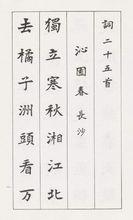 詞二十五首
沁園春 長沙
獨立寒秋湘江北
去橘子洲頭看万